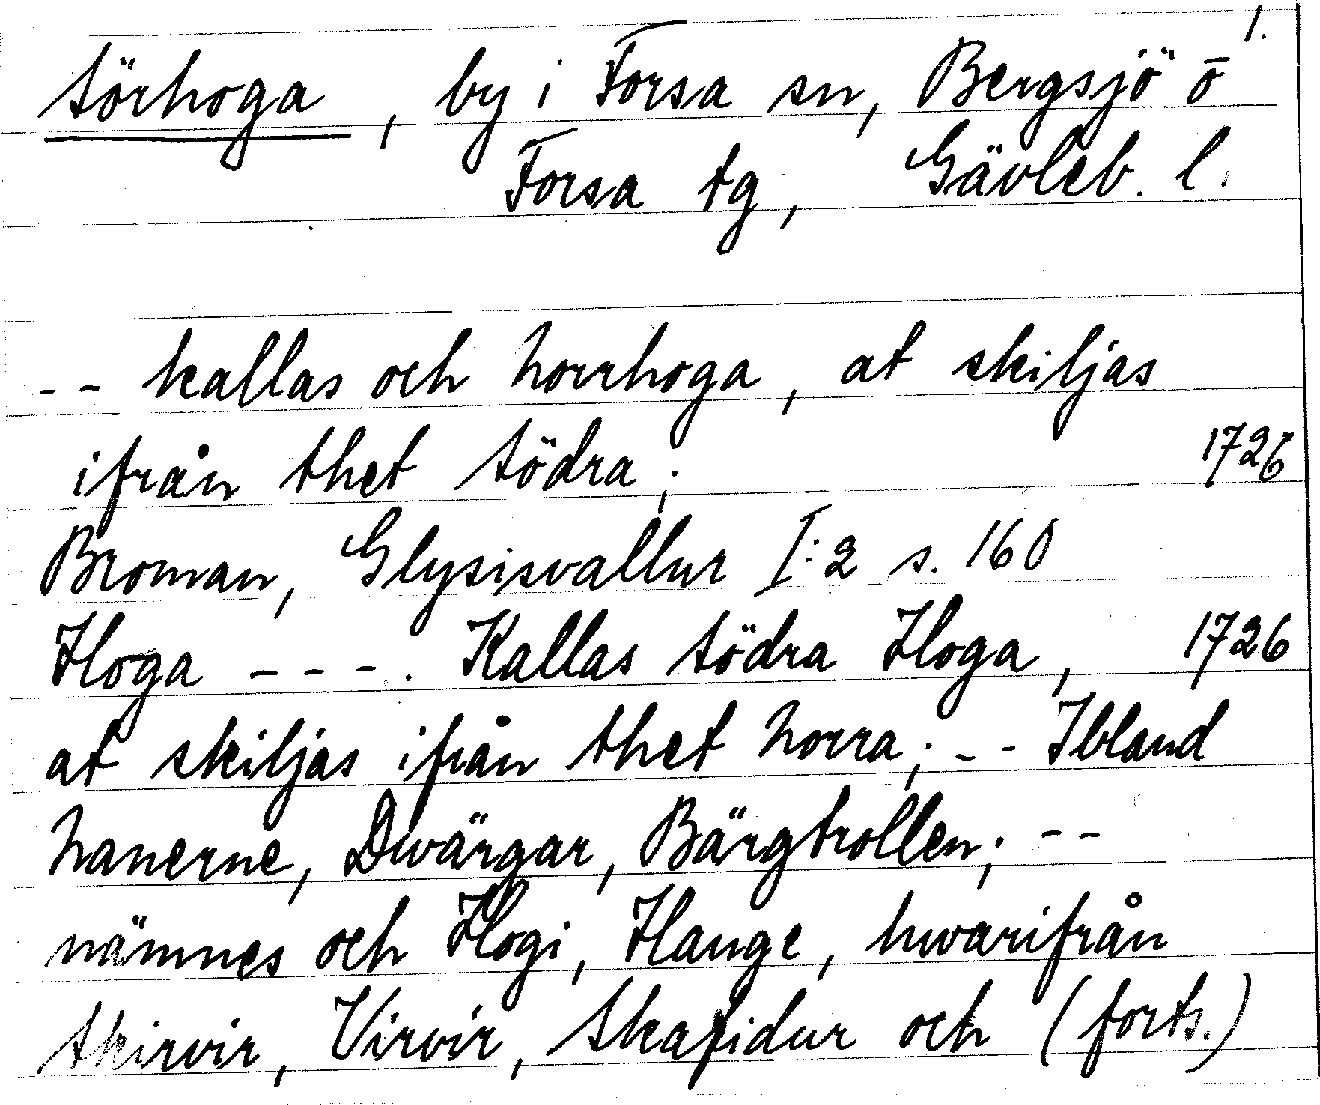 1.
Sörhoga, by i Forsa sn, Bergsjö o
Forsa tg, Gävleb. l.
-- kallas och Norrhoga, at skiljas
ifrån thet Södra; 1726
Broman, Glysisvallur I:2 s. 160
Hoga ---. Kallas Södra Hoga, 1726
at skiljas ifrån thet Norra; -- Ibland
Nanerne, Dwärgar, Bärgtrollen; --
nämnes och Hogi, Hauge, hwarifrån
Skirvir, Virvir, Skafidur och (forts.)